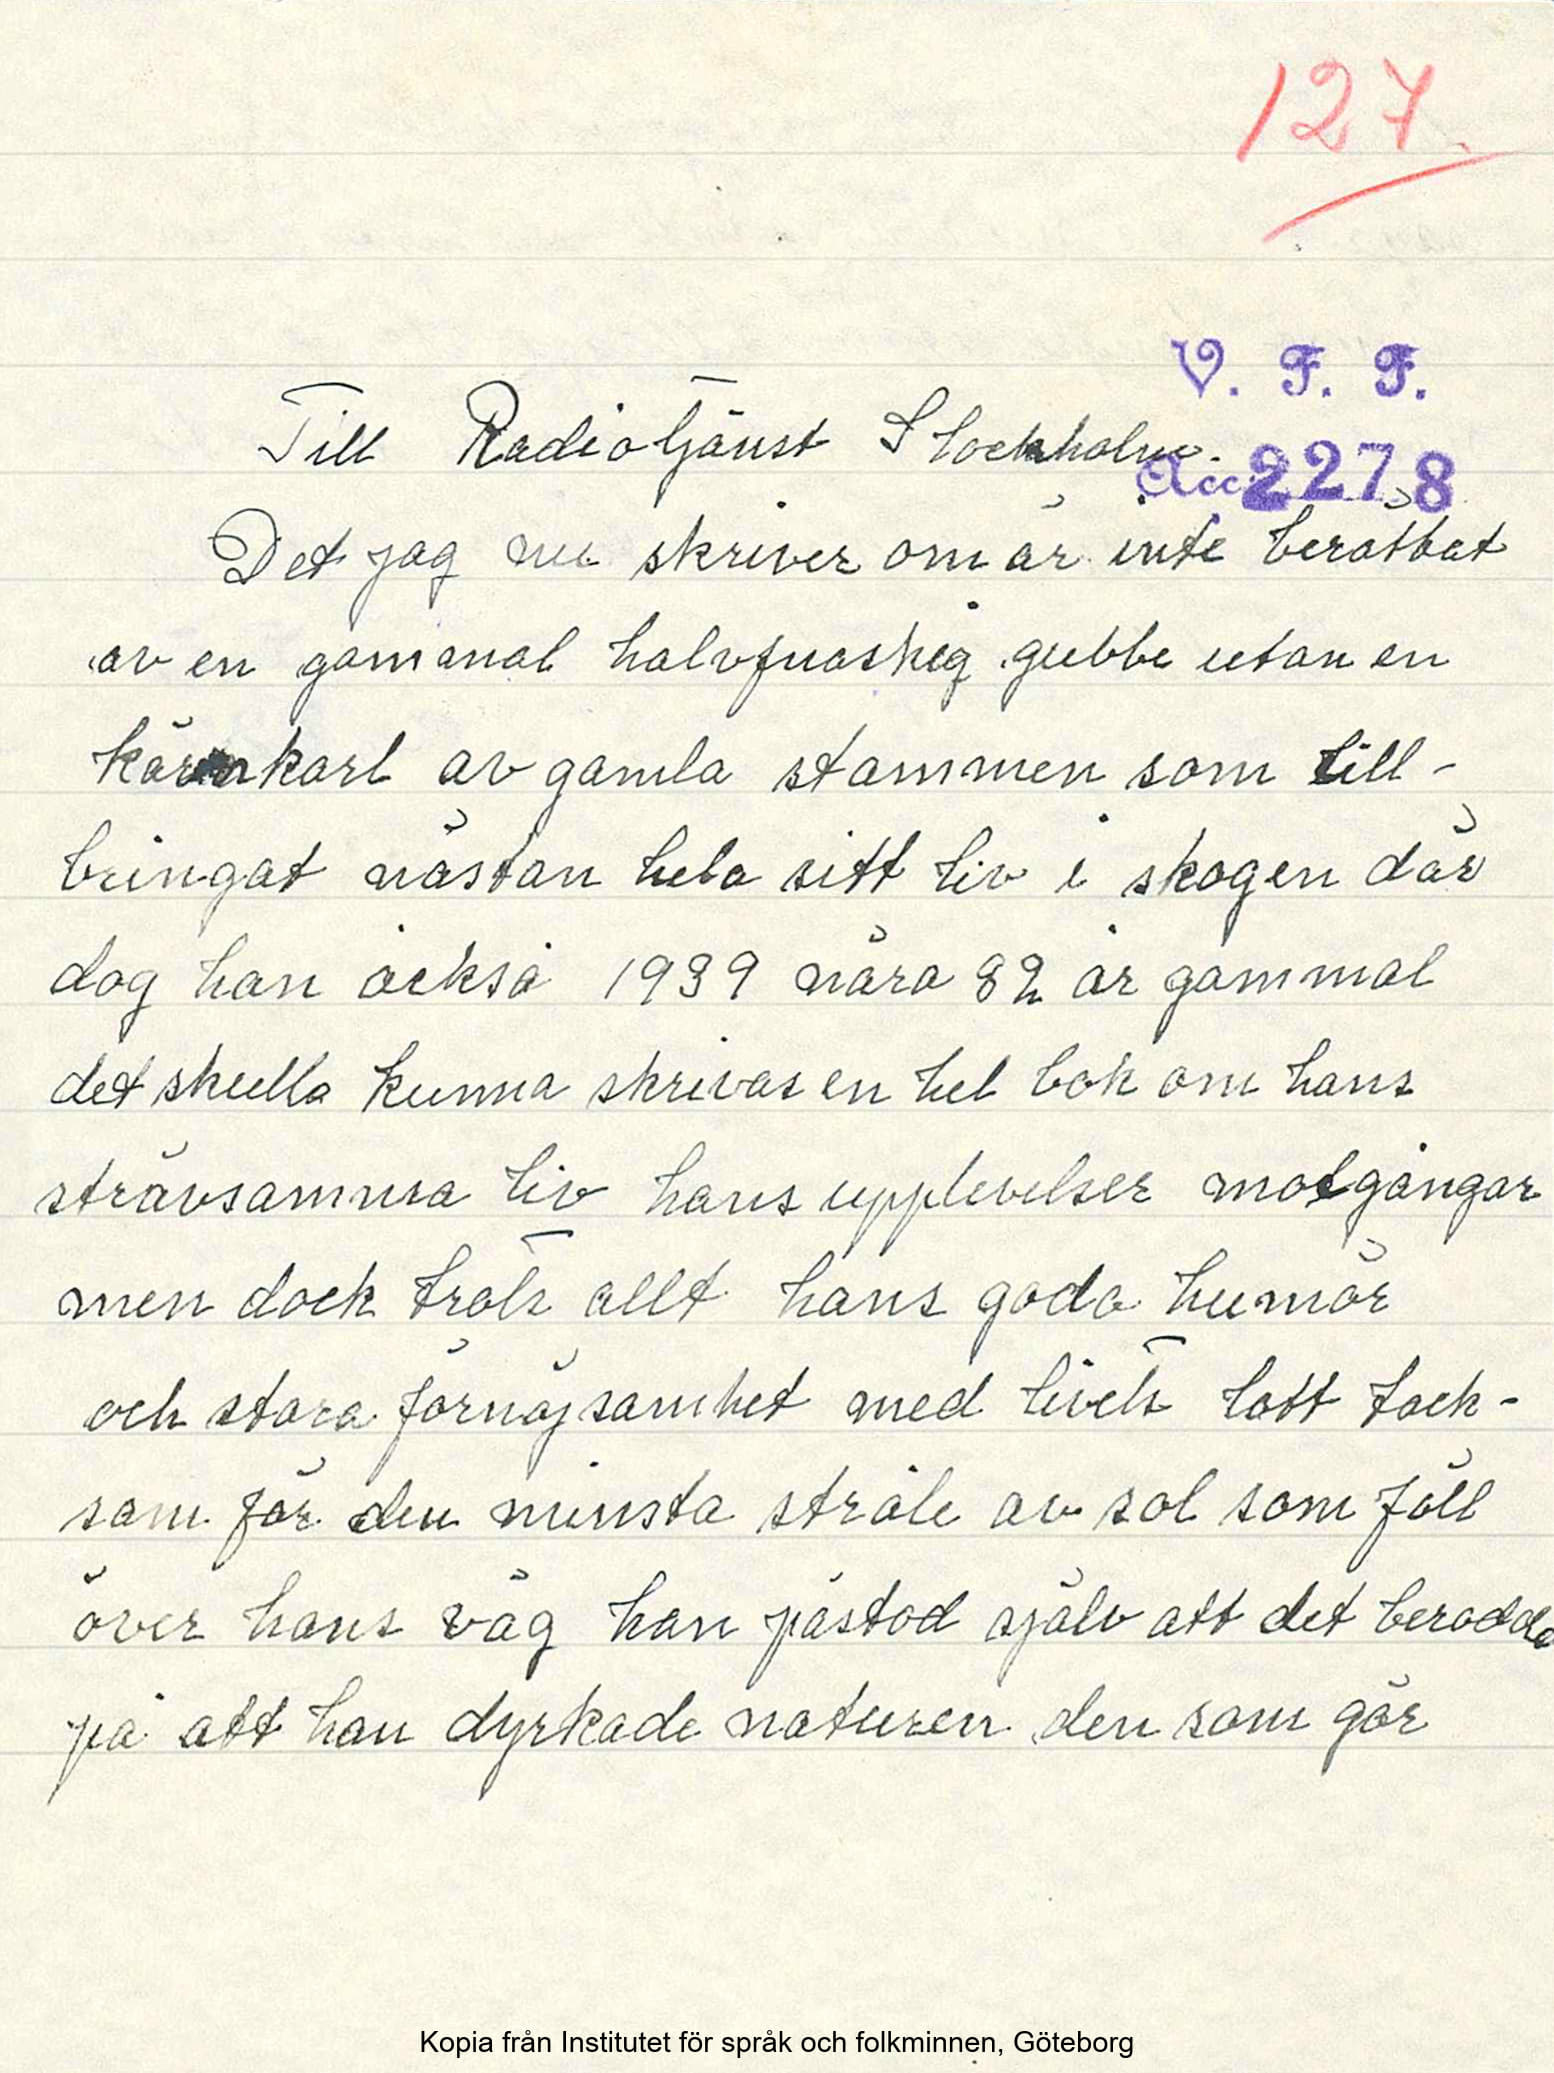 127.
V. F. F.
Till Radiotjänst Stockholm.
Acc. 2278
Det jag nu skriver om är inte berättat
av en gammal halvfnaskig gubbe utan en
kärnkarl av gamla stammen som till-
bringat nästan hela sitt liv i skogen där
dog han också 1939 nära 82 år gammal
det skulla kunna skrivas en hel bok om hans
strävsamma liv hans upplevelser motgångar
men dock trots allt hans goda humör
och stora förnöjsamhet med livets lott tack-
sam för den minsta stråle av sol som föll
över hans väg han påstod själv att det berodde
på att han dyrkade naturen den som gör
Kopia från Institutet för språk och folkminnen, Göteborg